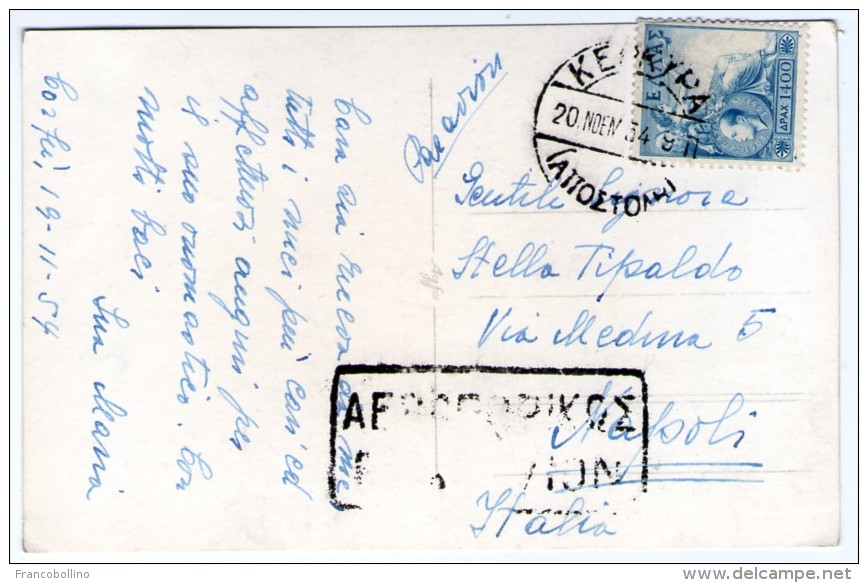 Par avion
ΚΕΡΚΥΡΑ
20.ΝΟΕΜ 54 9
ΑΠΟΣΤΟΛΗ
ΕΛΛΑΣ
ΔΡΑΧ 1400
Gentile Signora
Stella Tipaldo
Via Medina 5
Napoli
Italia
ΑΕΡΟΠΟΡΙΚΩΣ
VION
Cara zia
tutti i miei più cari ed
affettuosi auguri per
il suo onomastico. Con
molti baci
Sua Maria
Corfù, 19-11-54
Francobollino
delcampe.net